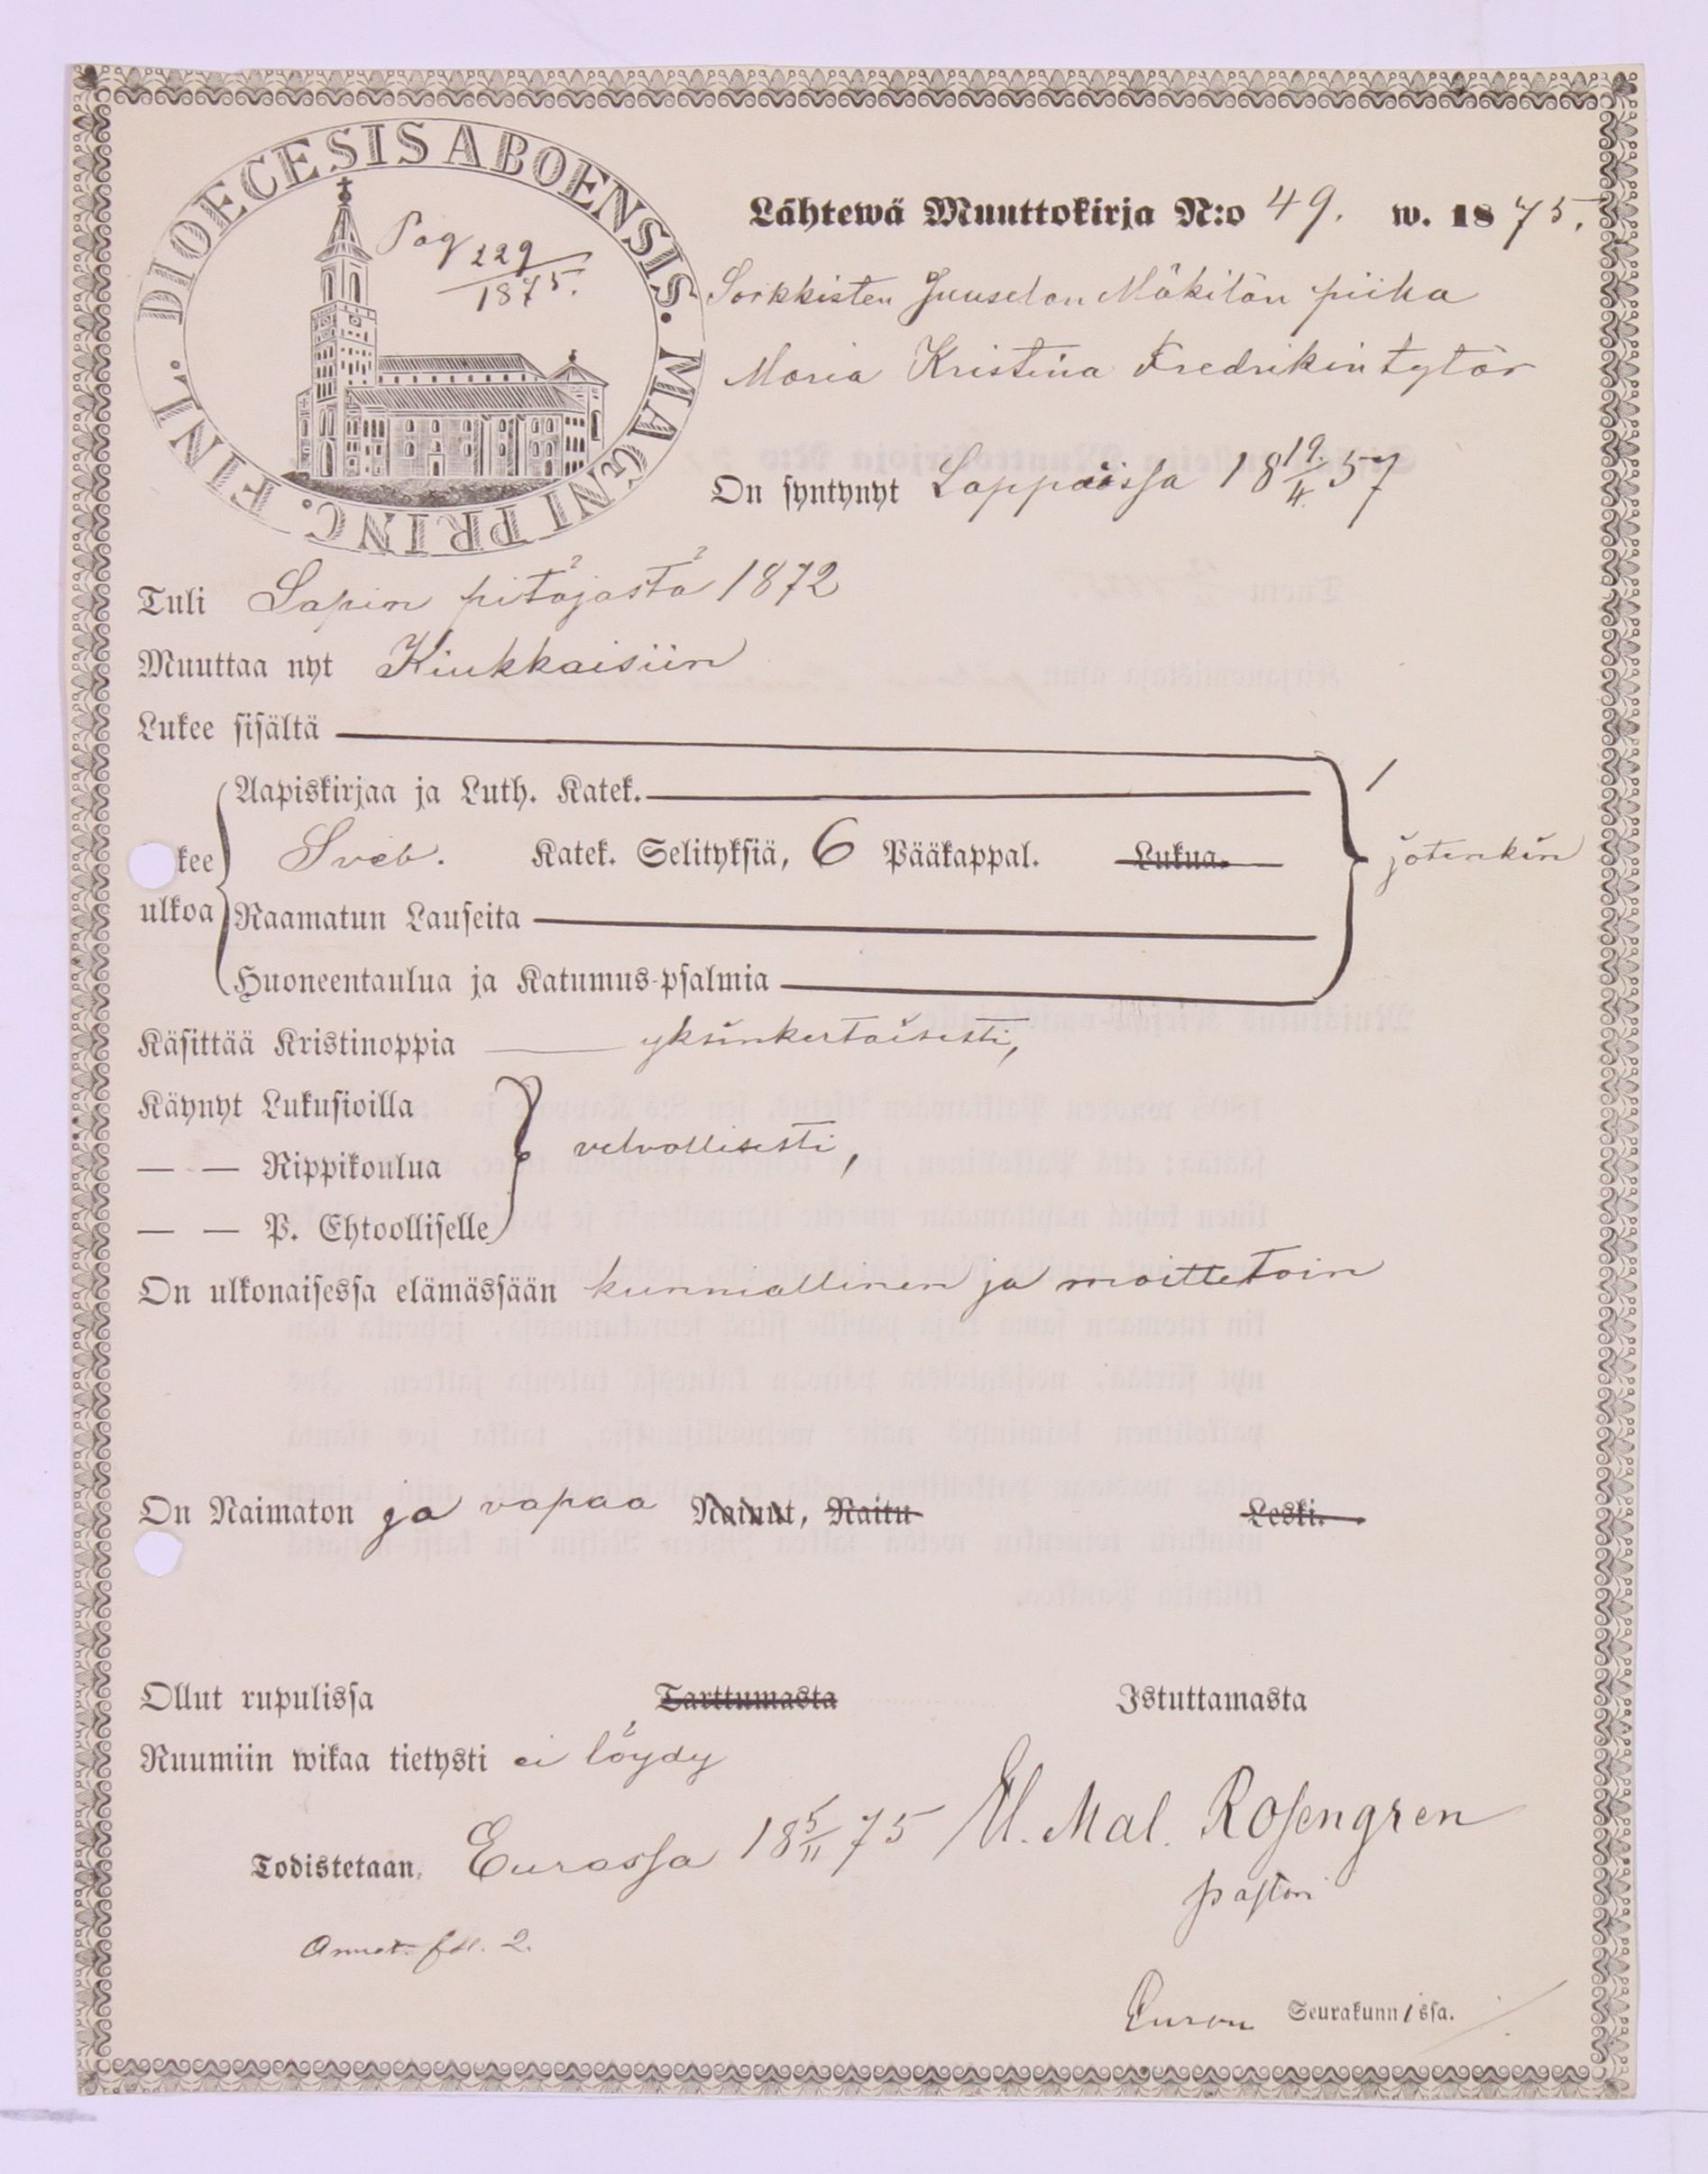 DIOECESIS ABOENSIS. MAGNI PRINC. FINL.
Pag 229
1875.
Lähtewä Muuttokirja N:o 49. w. 1875.
Sorkkisten Juuselan Mäkilän piika
Maria Kristina Fredrikintytär
On syntynyt Lappässa 18 19/4. 57
Tuli Lapin pitäjästä 1872
Muuttaa nyt Kiukkaisiin
Lukee sisältä
Aapiskirjaa ja Luth. Katek.
kee Sveb. Katek. Selityksiä, 6 Pääkappal. Lukua. jotenkin
ulkoa Raamatun Lauseita
Huoneentaulua ja Katumus-psalmia
Käsittää Kristinoppia yksinkertaisesti,
Käynyt Lukusioilla
— — Rippikoulua velvollisesti,
— — P. Ehtoolliselle
On ulkonaisessa elämässään kunniallinen ja moittetoin
On Naimaton ja vapaa Nainut, Naitu Leski.
Ollut rupulissa Tarttumasta Istuttamasta
Ruumiin wikaa tietysti ei löydy
Todistetaan, Eurassa 18 5/11 75 Mal. Rosengren
pastori
Annot. 2.
Euran Seurakunnissa.